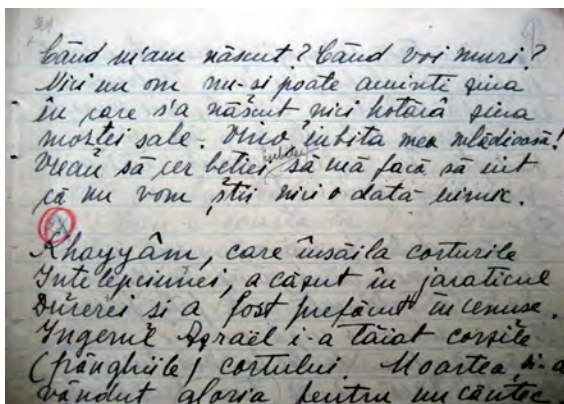 21
Când m'am născut? Când voi muri?
Nici un om nu-si poate aminti ziua
în care s'a născut nici hotărâ ziua
mortei sale. Vino iubita mea mlădioasă!
Vreau să cer betiei să mă facă să uit
că nu vom ştii nici o dată nimic.
XX
Khayyâm, care însăila corturile
Intelepciunei, a căzut în jaraticul
Durerei si a fost prefăcut în cenuse.
Ingerul Azraël i-a tăiat corzile
(frânghiile) cortului. Moartea si-a
vândut gloria pentru un cântec.